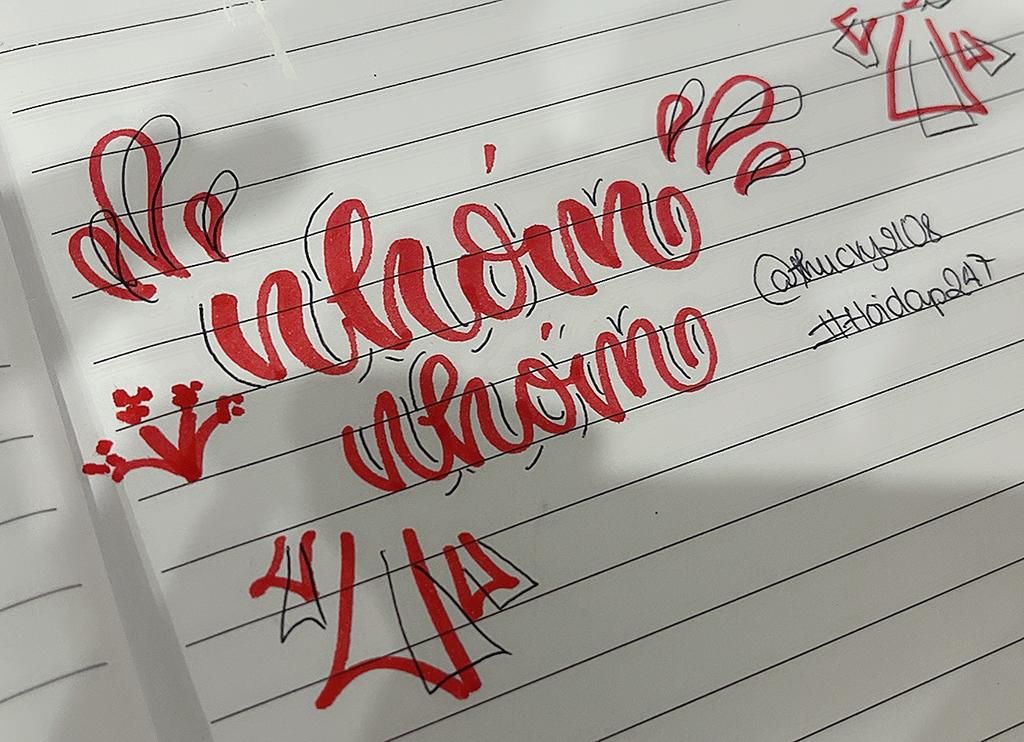 nhóm
@thucvy2108
nhóm
#Hoidap247